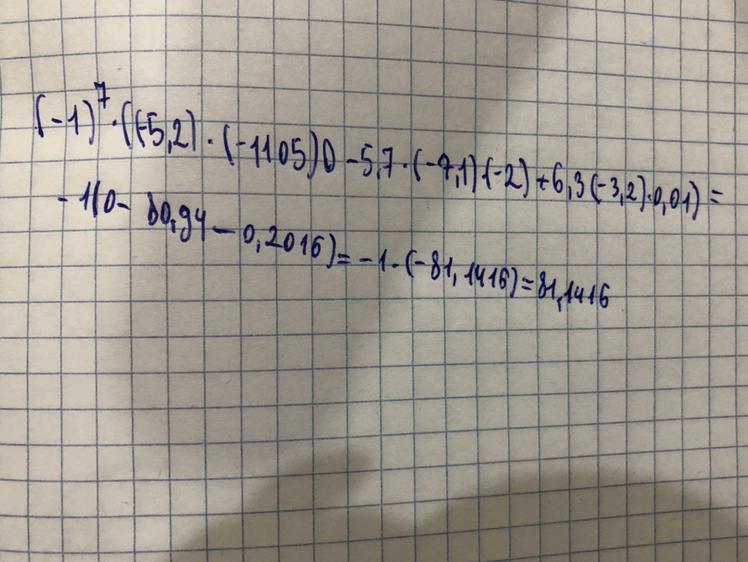 (-1)⁷·((-5,2)·(-1105)0-5,7·(-7,1)·(-2)+6,3(-3,2)·0,01)=
-1(0-80,94-0,2016)=-1·(-81,1416)=81,1416